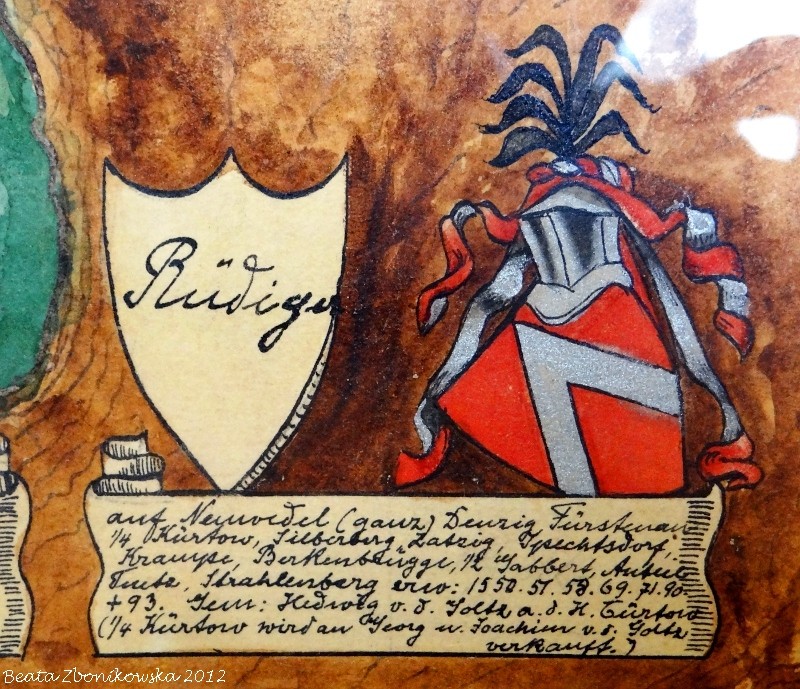 Rüdiger
auf Neuwedel (ganz) Denzig, Fürstenau
1/4 Kürtow, Silberberg, Zatzig, Spechtsdorf,
Krampe, Berkenbrügge, 1/2 Gabbert, Anteil
Tuetz, Strahlenberg erw: 1550. 57. 58. 69. 71. 90.
+ 93. Gem: Hedwig v. d. Goltz a. d. H. Cürtow
(1/4 Kürtow wird an Georg u. Joachim v. d. Goltz
verkauft.)
Beata Zbonikowska 2012